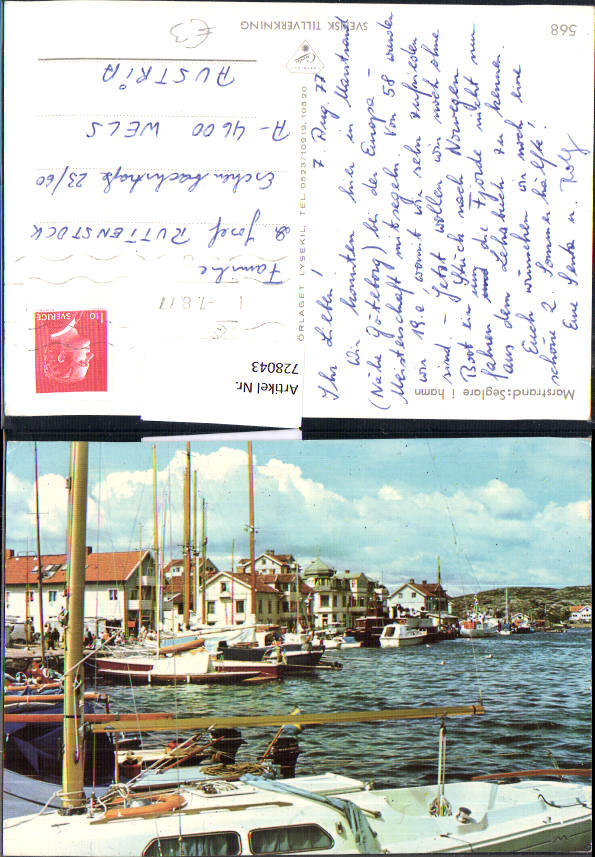 568
SVENSK TILLVERKNING
€3
7. Aug. 77
Ihr Lieben!
Wir konnten hier in Marstrand
(Nähe Göteborg) bei der Europa-
Meisterschaft mitsegeln. Von 58 wurden
wir 19.e womit wir sehr zufrieden
sind. – Jetzt wollen wir noch ohne
Boot ein Stück nach Norwegen
fahren um die Fjorde nicht nur
aus dem Lehrbuch zu kennen.
Euch wünschen wir noch eine
schöne 2. Sommerhälfte!
Eure Senta u. Rolf
Marstrand: Seglare i hamn
ÖRLAGET LYSEKIL, TEL. 0523/10919, 10320
SVERIGE
1.10
-7.8.77
Familie
Josef RUTTENSTOCK
Eschenbachstraße 23/60
A-4600 WELS
AUSTRIA
Artikel Nr.
728043